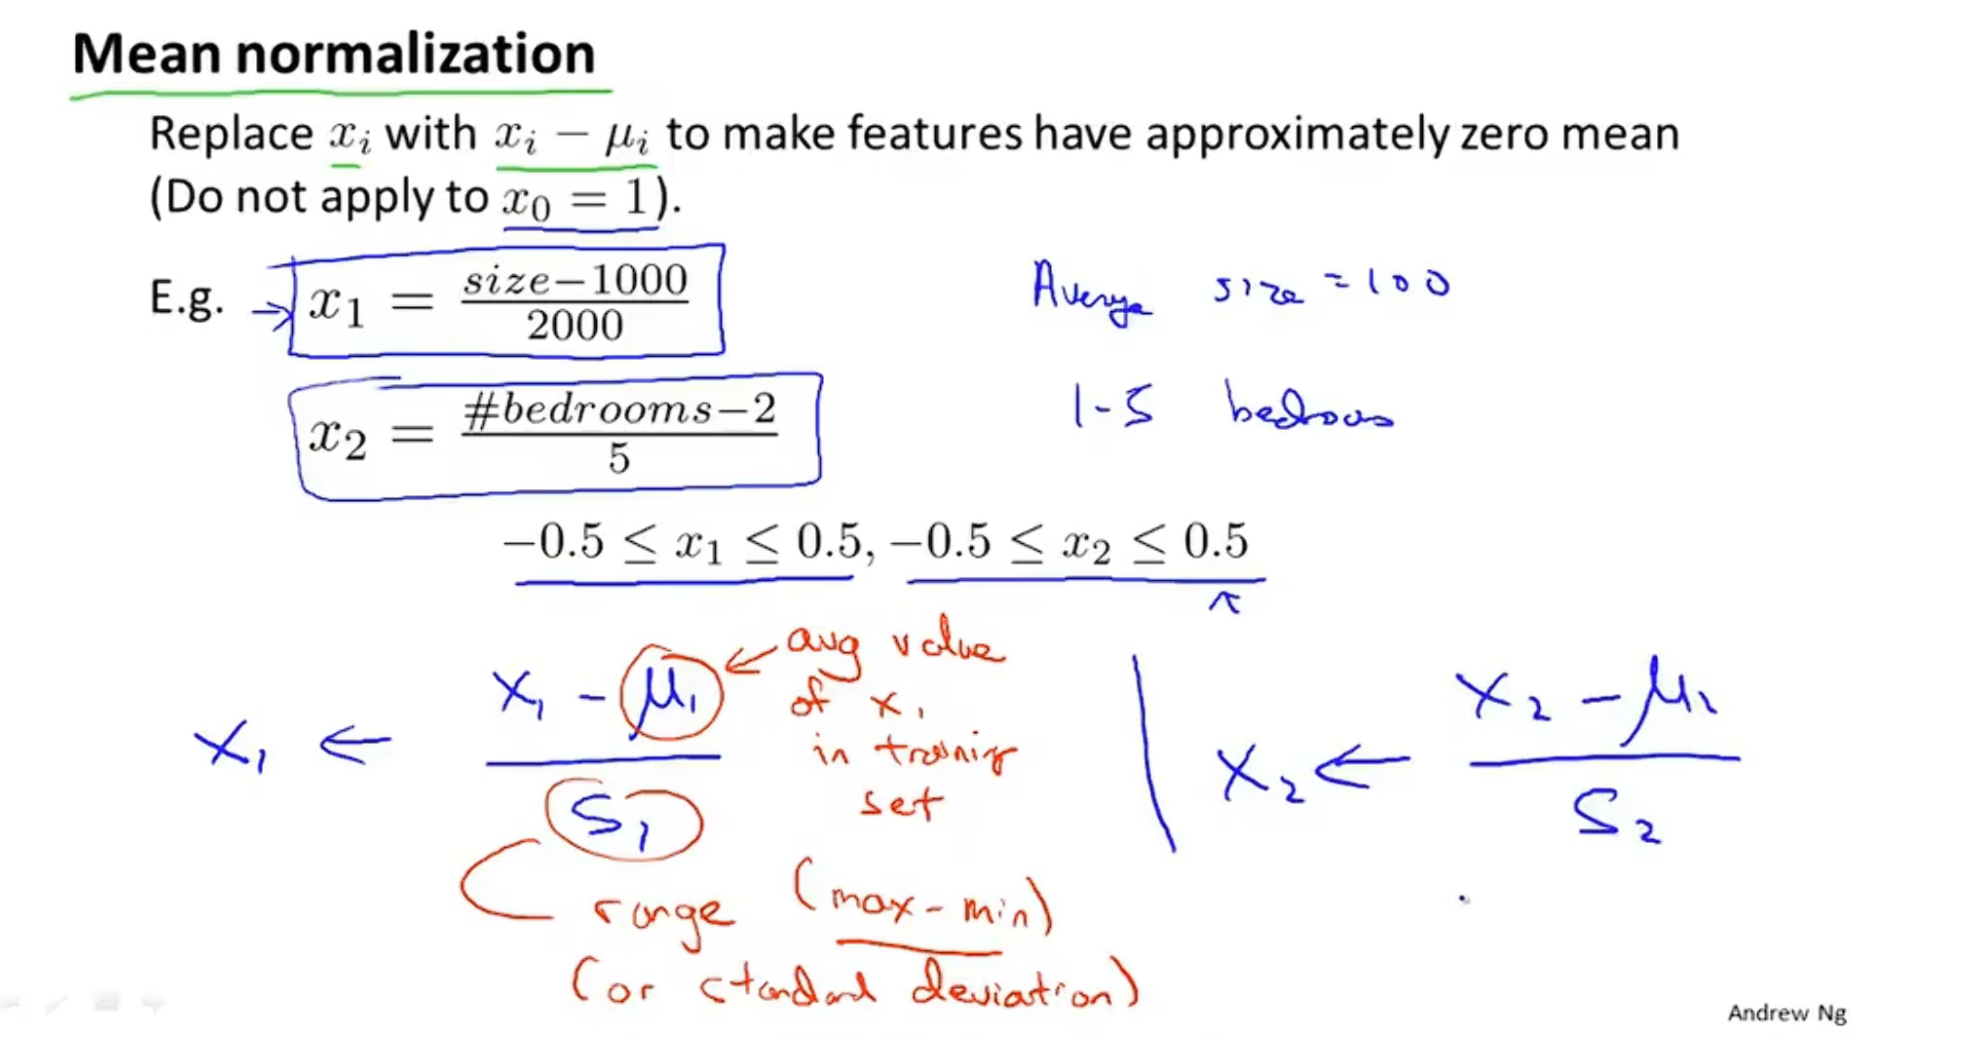 Mean normalization
Replace xᵢ with xᵢ − μᵢ to make features have approximately zero mean
(Do not apply to x₀ = 1).
E.g. → x₁ = (size−1000)/2000
Average size = 100
x₂ = (#bedrooms−2)/5
1-5 bedrooms
−0.5 ≤ x₁ ≤ 0.5, −0.5 ≤ x₂ ≤ 0.5
x₁ ← (x₁ − μ₁)/S₁
← avg value
of x₁
in training
set
range (max-min)
(or standard deviation)
x₂ ← (x₂ − μ₂)/S₂
Andrew Ng